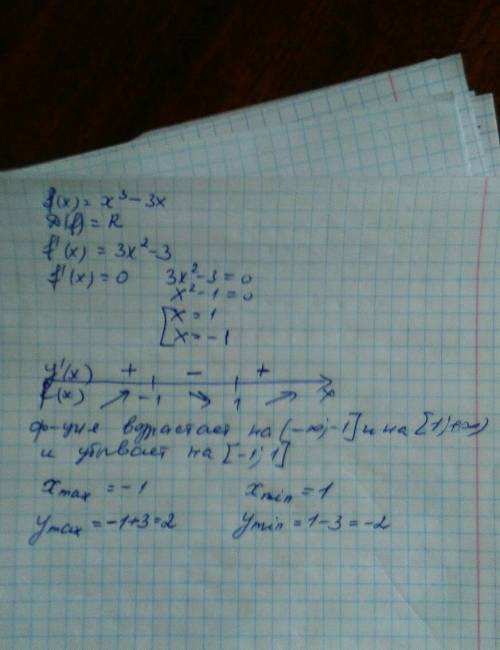 f(x) = x³ - 3x
D(f) = R
f'(x) = 3x² - 3
f'(x) = 0 3x² - 3 = 0
x² - 1 = 0
[ x = 1
x = -1
y'(x) + - + 
f(x) ↗ -1 ↘ 1 ↗ x
ф-ция возрастает на (-∞; -1] и на [1; +∞)
и убывает на [-1; 1]
x max = -1 x min = 1
y max = -1+3=2 y min = 1-3=-2